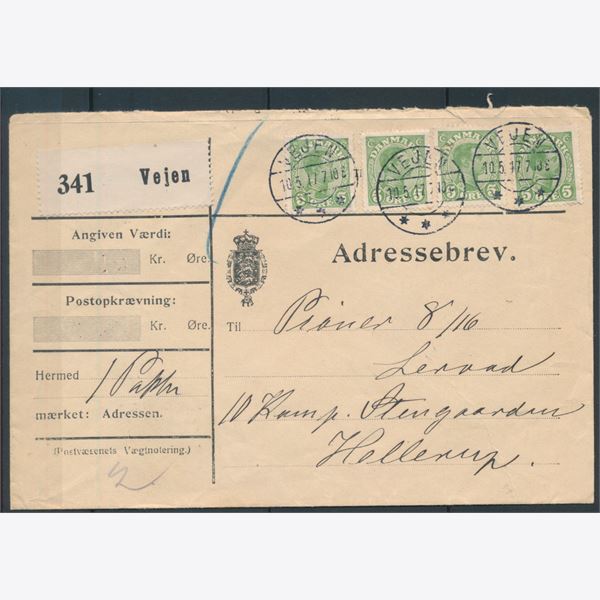 341 Vejen
VEJEN
10.5.17.7.10E
DANMARK
5 ØRE 5
VEJEN
10.5.17.
DANMARK
VEJEN
10.5.17.7.10E
5 ØRE 5
Angiven Værdi:
Kr. Øre.
Postopkrævning:
Kr. Øre.
Hermed 1 Pakke
mærket: Adressen.
(Postvæsenets Vægtnotering.)
2
Adressebrev.
Til Pioner 8/16
Lervad
10 Komp. Stengaarden
Hellerup.